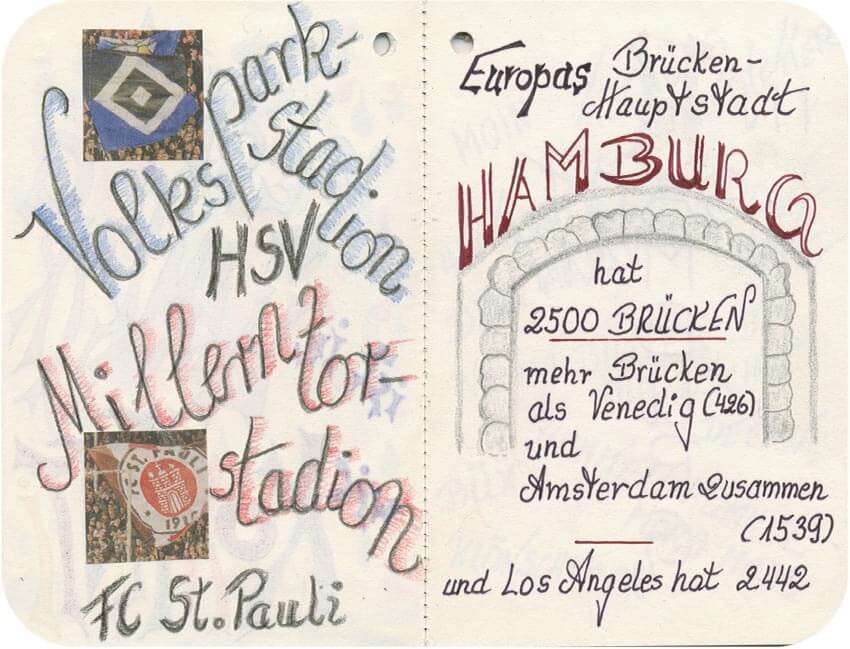 Volkspark-
stadion
HSV
Millerntor-
stadion
FC ST. PAULI
1910
FC St. Pauli
Europas Brücken-
Hauptstadt
HAMBURG
hat
2500 BRÜCKEN
mehr Brücken
als Venedig (426)
und
Amsterdam zusammen
(1539)
und Los Angeles hat 2442